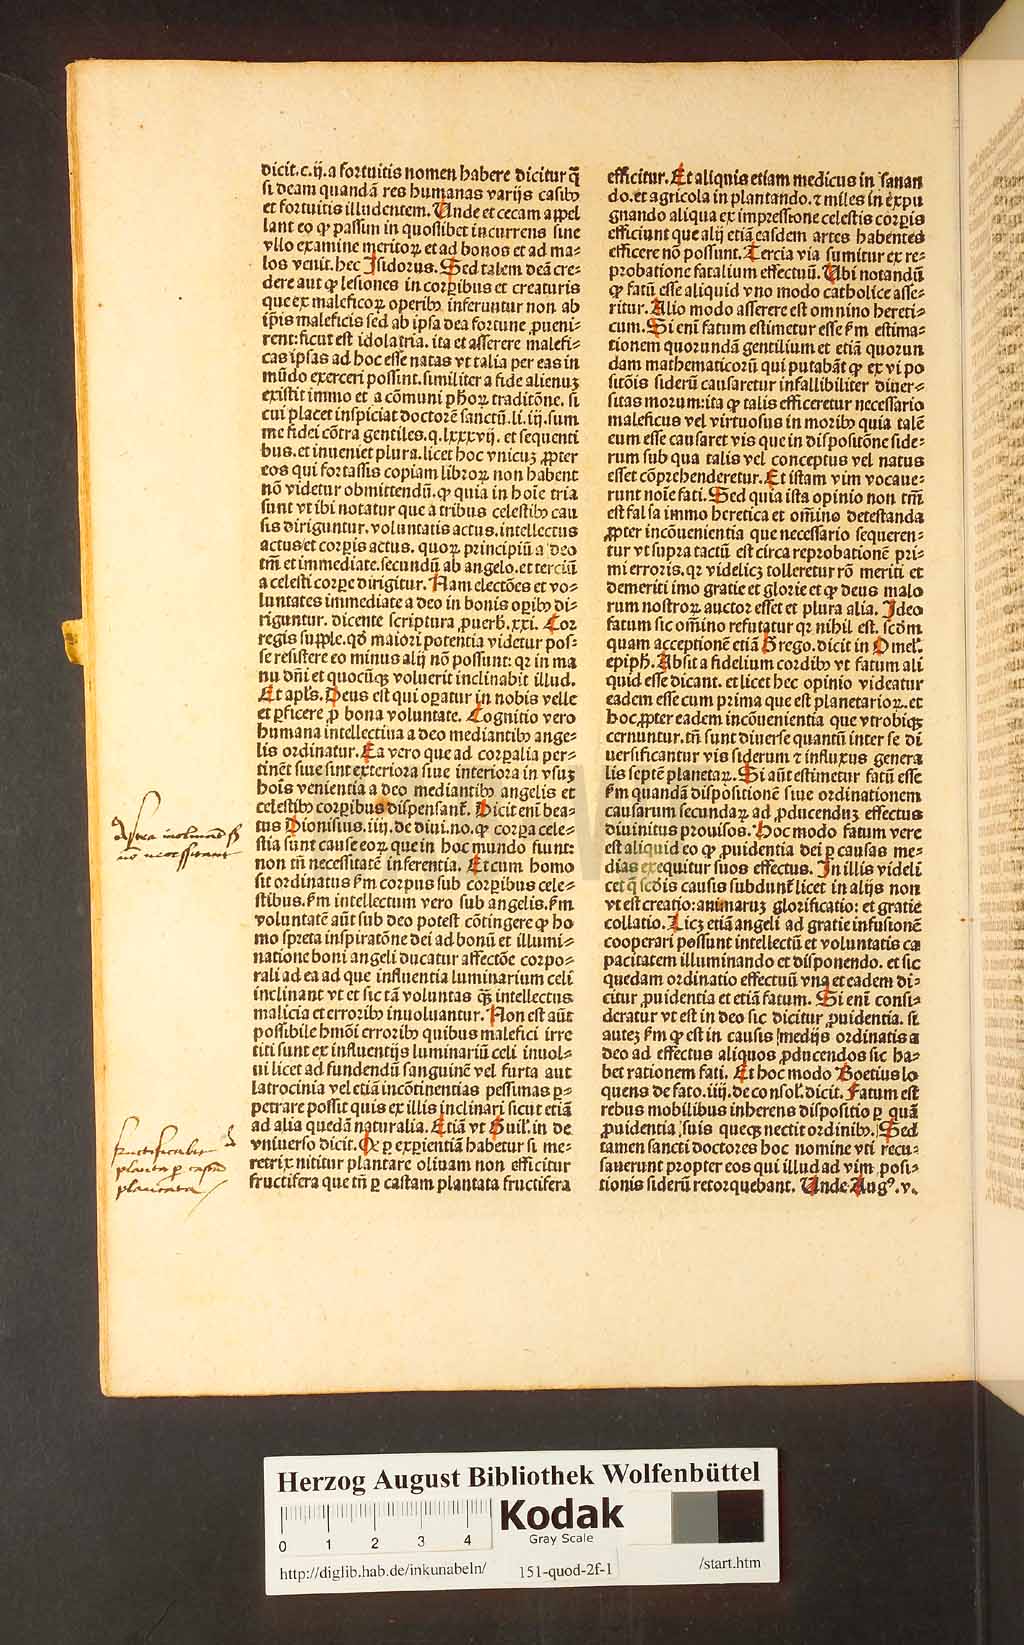 dicit.c.ij.a fortuitis nomen habere dicitur q̄
si deam quandā res humanas varijs casibꝰ
et fortuitis illudentem. Unde et cecam appel
lant eo ꝙ passim in quoslibet incurrens sine
vllo examine meritoꝝ et ad bonos et ad ma⸗
los venit. hec Isidorus. Sed talem deā cre⸗
dere aut ꝙ lesiones in corꝑibus et creaturis
que ex maleficoꝝ operibꝰ inferuntur non ab
ip̄is maleficis sed ab ipsa dea fortune ꝓueni⸗
rent: sicut est idolatria. ita et asserere malefi⸗
cas ipsas ad hoc esse natas vt talia per eas in
mūdo exerceri possint. similiter a fide alienuꝫ
existit immo et a cōmuni ph̄oꝝ traditōne. si
cui placet inspiciat doctorē sanctū. li. iij. sum
me fidei cōtra gentiles. q. lxxxvij. et sequenti
bus. et inueniet plura. licet hoc vnicuꝫ ꝓpter
eos qui fortassis copiam libroꝝ non habent
nō videtur obmittendū. ꝙ quia in hoīe tria
sunt vt ibi notatur que a tribus celestibꝰ cau
sis diriguntur. voluntatis actus. intellectus
actus et corꝑis actus. quoꝝ principiū a deo
tm̄ et immediate. secundū ab angelo. et terciū
a celesti corꝑe dirigitur. Nam electōes et vo⸗
luntates immediate a deo in bonis oꝑibꝰ di⸗
riguntur. dicente scriptura ꝓuerb. xxi. Cor
regis supple. qd̄ maiori potentia videtur pos⸗
se resistere eo minus alij nō possunt: qꝛ in ma
nu dn̄i et quocūqꝫ voluerit inclinabit illud.
Et apl̄s. Deus est qui oꝑatur in nobis velle
et ꝑficere ꝓ bona voluntate. Cognitio vero
humana intellectiua a deo mediantibꝰ ange⸗
lis ordinatur. Ea vero que ad corꝑalia per⸗
tinēt siue sint exteriora siue interiora in vsuꝫ
hoīs venientia a deo mediantibꝰ angelis et
celestibꝰ corꝑibus dispensant̄. Dicit enī bea⸗
tus Dionisius. iiij. de diui. no. ꝙ corꝑa cele⸗
stia sunt cause eoꝝ que in hoc mundo fiunt:
non tn̄ necessitatē inferentia. Et cum homo
sit ordinatus s̄m corpus sub corꝑibus cele⸗
stibus. s̄m intellectum vero sub angelis. s̄m
voluntatē aūt sub deo potest cōtingere ꝙ ho
mo spreta inspiratōne dei ad bonū et illumi⸗
natione boni angeli ducatur affectōe corpo⸗
rali ad ea ad que influentia luminarium celi
inclinant vt et sic tā voluntas q̄ꝫ intellectus
malicia et erroribꝰ inuoluantur. Non est aūt
possibile hmōi erroribꝰ quibus malefici irre
titi sunt ex influentijs luminariū celi inuol⸗
ui licet ad fundendū sanguinē vel furta aut
latrocinia vel etiā incōtinentias pessimas ꝑ⸗
petrare possit quis ex illis inclinari sicut etiā
ad alia quedā naturalia. Etiā vt Guil. in de
vniuerso dicit. Qꝫ ꝑ exꝑientiā habetur si me⸗
retrix nititur plantare oliuam non efficitur
fructifera que tn̄ ꝑ castam plantata fructifera
efficitur. Et aliquis etiam medicus in sanan
do. et agricola in plantando. ⁊ miles in expu
gnando aliqua ex impressione celestis corꝑis
efficiunt que alij etiā easdem artes habentes
efficere nō possunt. Tercia via sumitur ex re⸗
probatione fatalium effectuū. Ubi notandū
ꝙ fatū esse aliquid vno modo catholice asse⸗
ritur. Alio modo asserere est omnino hereti⸗
cum. Si enī fatum estimetur esse s̄m estima⸗
tionem quorundā gentilium et etiā quorun
dam mathematicorū qui putabāt ꝙ ex vi po
sitōis siderū causaretur infallibiliter diuer⸗
sitas morum: ita ꝙ talis efficeretur necessario
maleficus vel virtuosus in moribꝰ quia talē
eum esse causaret vis que in dispositōne side⸗
rum sub qua talis vel conceptus vel natus
esset cōprehenderetur. Et istam vim vocaue⸗
runt noīe fati. Sed quia ista opinio non tm̄
est falsa immo heretica et om̄ino detestanda
ꝓpter incōuenientia que necessario sequeren⸗
tur vt supra tactū est circa reprobationē pri⸗
mi erroris. qꝛ videlicꝫ tolleretur rō meriti et
demeriti imo gratie et glorie et ꝙ deus malo
rum nostroꝝ auctor esset et plura alia. Ideo
fatum sic om̄ino refutatur qꝛ nihil est. scd̄m
quam acceptionē etiā Grego. dicit in Omel.
epiph. Absit a fidelium cordibꝰ vt fatum ali
quid esse dicant. et licet hec opinio videatur
eadem esse cum prima que est planetarioꝝ. et
hoc ꝓpter eadem incōuenientia que vtrobiqꝫ
cernuntur. tn̄ sunt diuerse quantū inter se di
uersificantur vis siderum ⁊ influxus genera
lis septē planetaꝝ. Si aūt estimetur fatū esse
s̄m quandā dispositionē siue ordinationem
causarum secundaꝝ ad ꝓducenduꝫ effectus
diuinitus prouisos. Hoc modo fatum vere
est aliquid eo ꝙ ꝓuidentia dei ꝑ causas me⸗
dias exequitur suos effectus. In illis videli
cet q̄ scd̄is causis subdunt̄ licet in alijs non
vt est creatio: animaruꝫ glorificatio: et gratie
collatio. Licꝫ etiā angeli ad gratie infusionē
cooperari possunt intellectū et voluntatis ca
pacitatem illuminando et disponendo. et sic
quedam ordinatio effectuū vna et eadem di⸗
citur ꝓuidentia et etiā fatum. Si enī consi⸗
deratur vt est in deo sic dicitur ꝓuidentia. si
auteꝫ s̄m ꝙ est in causis medijs ordinatis a
deo ad effectus aliquos ꝓducendos sic ha⸗
bet rationem fati. Et hoc modo Boetius lo
quens de fato. iiij. de consol. dicit. Fatum est
rebus mobilibus inherens dispositio ꝑ quā
ꝓuidentia suis queqꝫ nectit ordinibꝰ. Sed
tamen sancti doctores hoc nomine vti recu⸗
sauerunt propter eos qui illud ad vim ꝓsi⸗
tionis siderū retorquebant. Unde Augꝰ. v.
astra inclinant s̄
nō necessitant
fructificabit
planta ꝑ castā
plantata
Herzog August Bibliothek Wolfenbüttel
0 1 2 3 4
Kodak
Gray Scale
http://diglib.hab.de/inkunabeln/
151-quod-2f-1
/start.htm